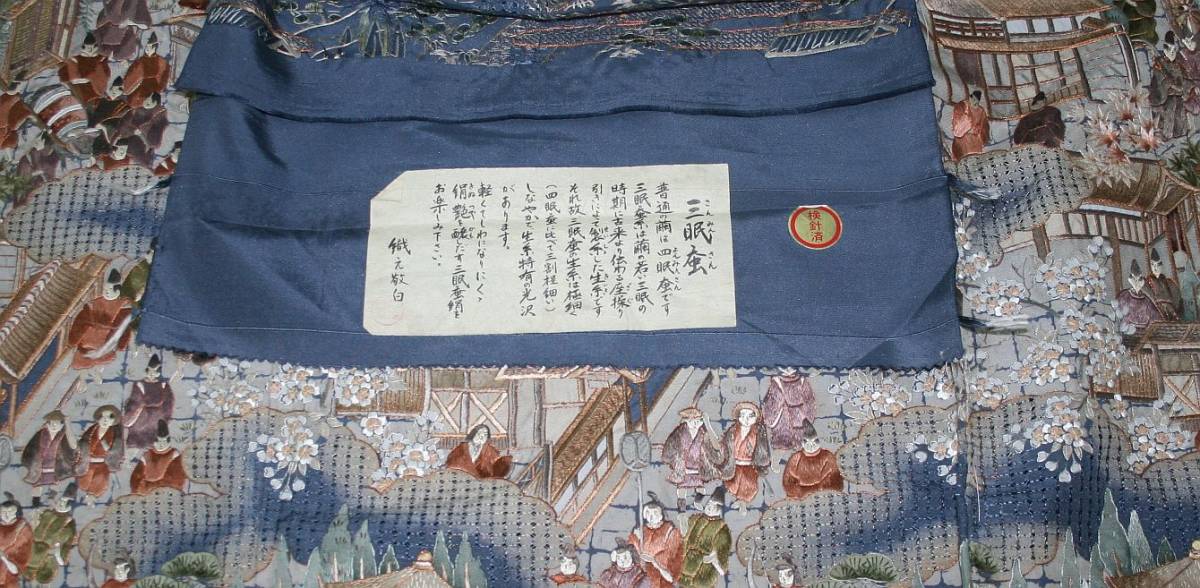 三眠蚕
普通の繭は四眠蚕です
三眠蚕糸は繭の若い三眠の
時期に古来より伝わる座操り
引きによって製糸した生糸です
それ故三眠蚕の生糸は極細で
(四眠蚕に比べて三割程細い)
しなやかで生糸特有の光沢
があります。
軽くてしわになりにくく
絹艶を醸しだす三眠蚕絹を
お楽しみ下さい。
織元敬白
検針済